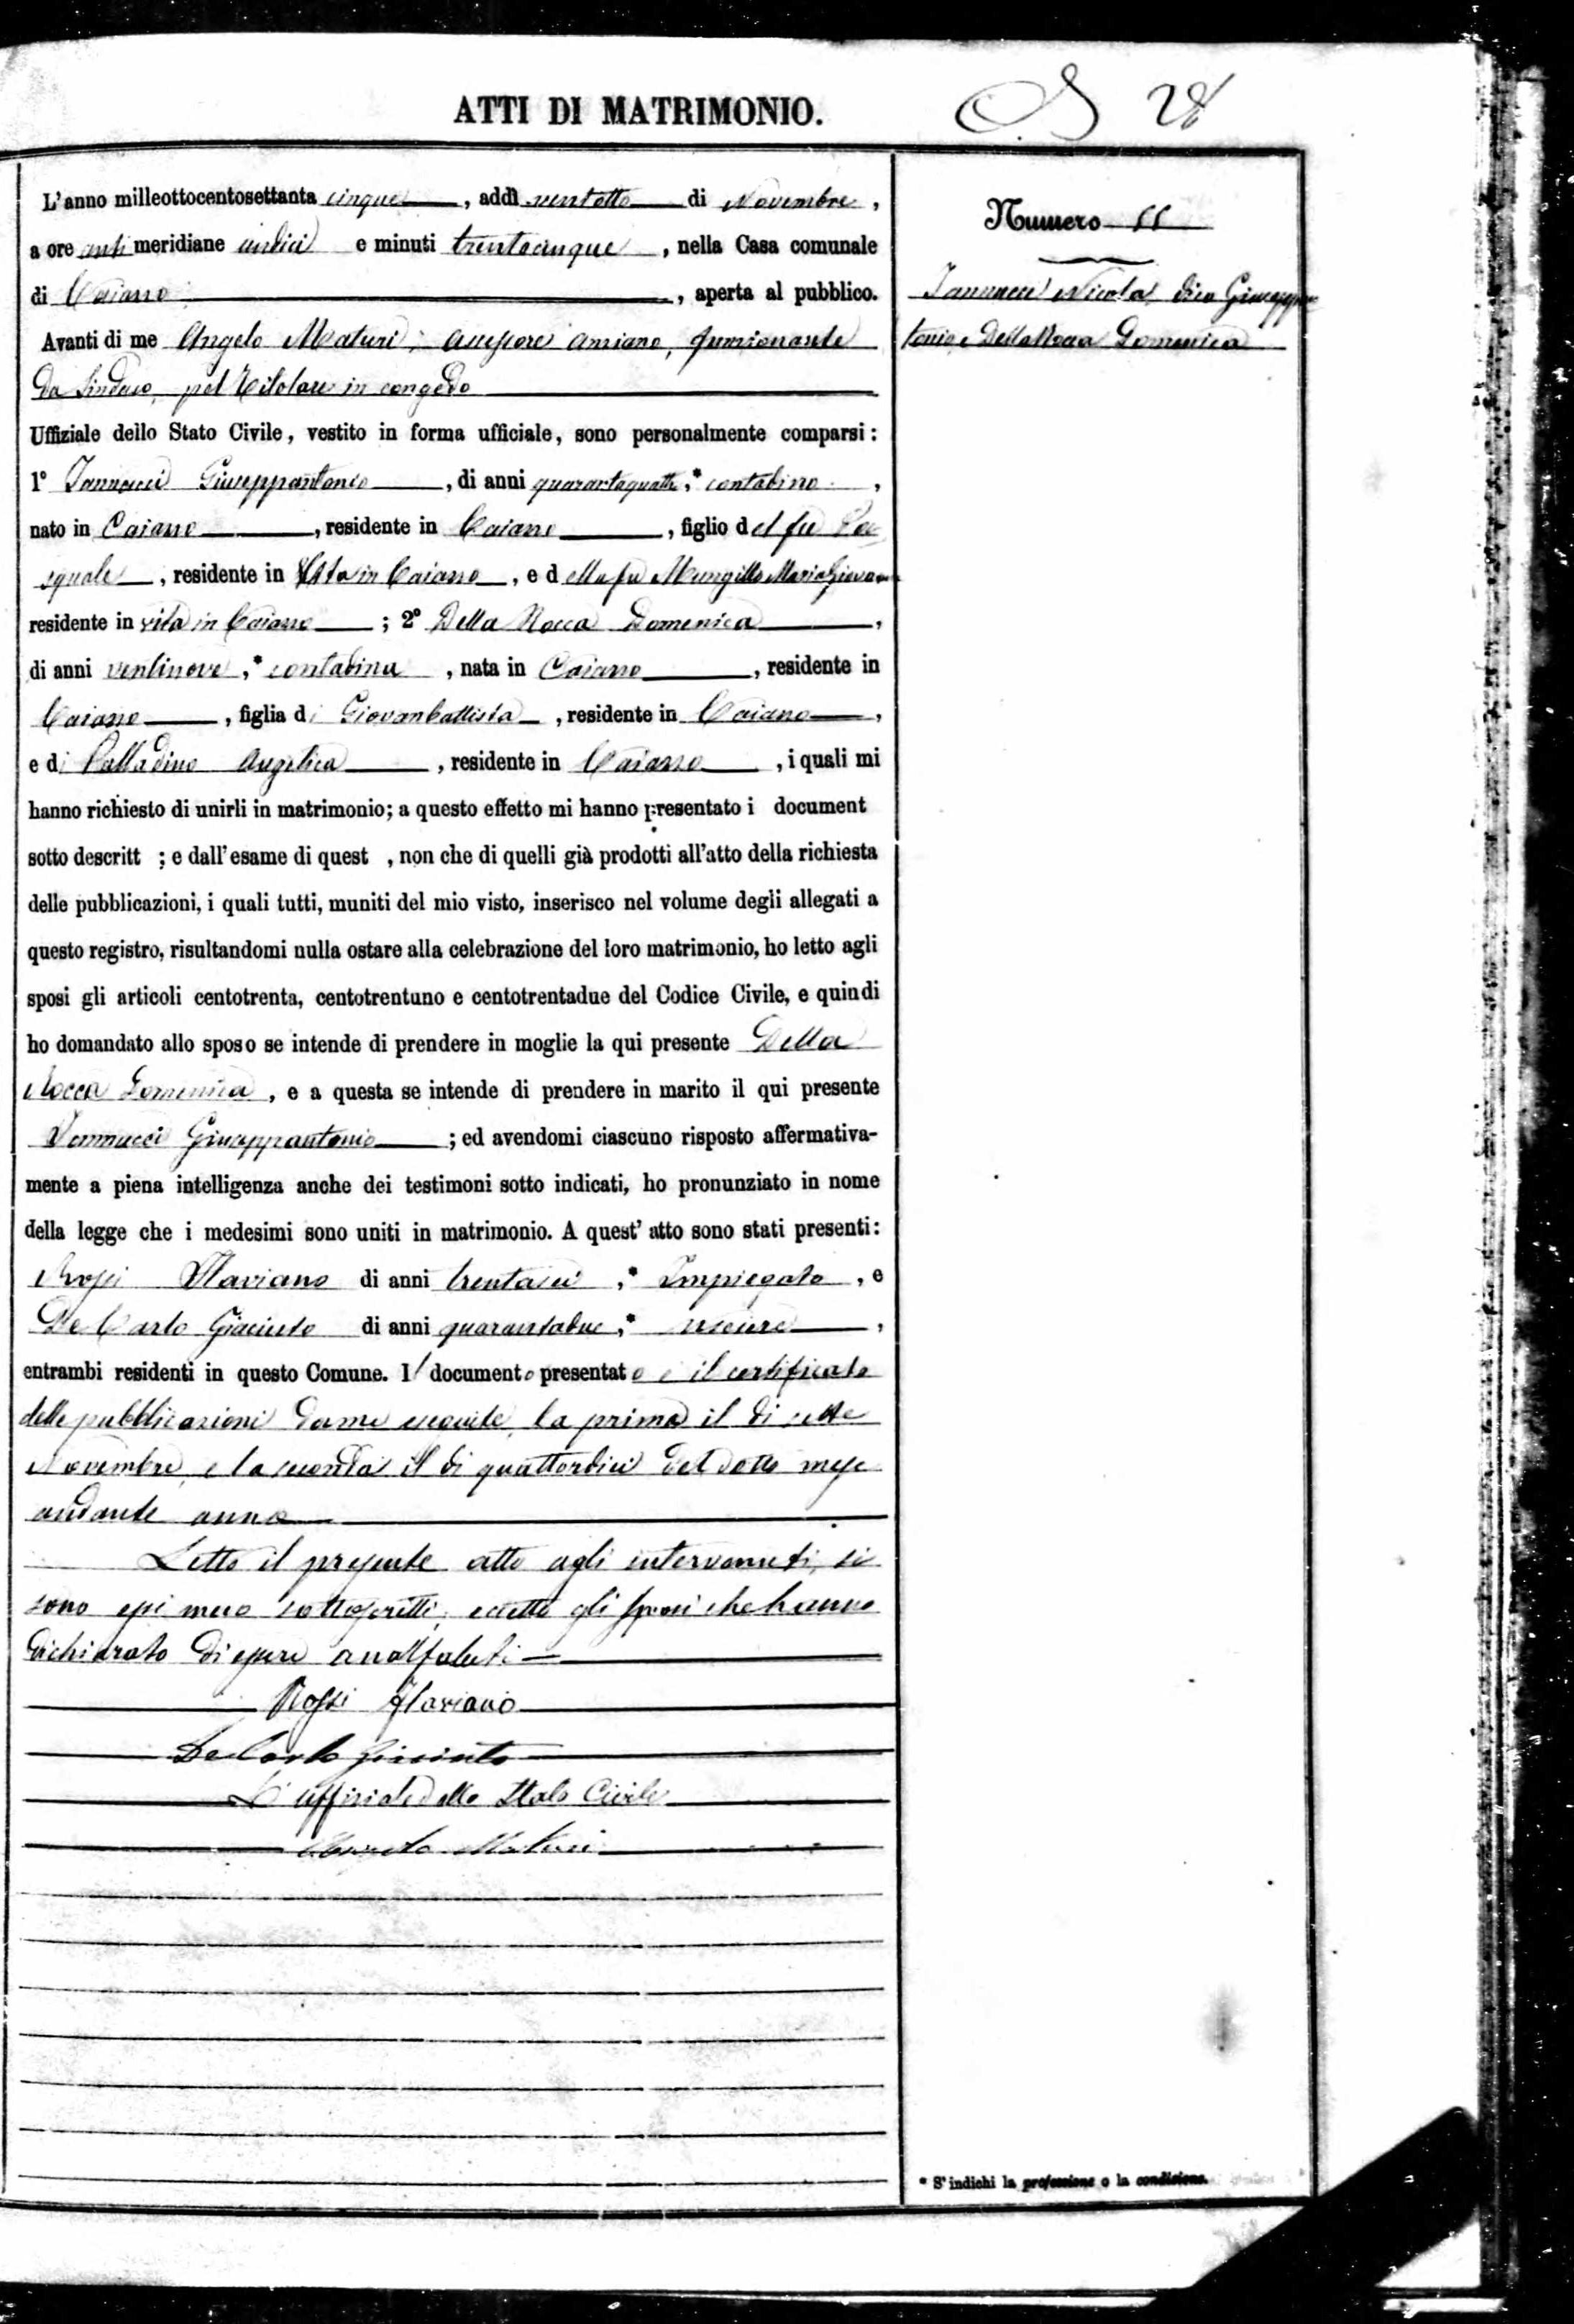 ATTI DI MATRIMONIO.
28
L'anno milleottocentosettanta cinque, addì ventotto di Novembre,
a ore anti meridiane undici e minuti trentacinque, nella Casa comunale
di Caiazzo, aperta al pubblico.
Avanti di me Angelo Maturi, assessore anziano, funzionante
da Sindaco, pel titolare in congedo
Uffiziale dello Stato Civile, vestito in forma ufficiale, sono personalmente comparsi:
1° Iannucci Giuseppantonio, di anni quarantaquattro,* contadino,
nato in Caiazzo, residente in Caiazzo, figlio del fu Pa
squale, residente in vita in Caiazzo, e della fu Mungillo Maria Giovan
residente in vita in Caiazzo; 2° Della Rocca Domenica,
di anni ventinove,* contadina, nata in Caiazzo, residente in
Caiazzo, figlia di Giovanbattista, residente in Caiazzo,
e di Palladino Angelica, residente in Caiazzo, i quali mi
hanno richiesto di unirli in matrimonio; a questo effetto mi hanno presentato i document
sotto descritt ; e dall'esame di quest , non che di quelli già prodotti all'atto della richiesta
delle pubblicazioni, i quali tutti, muniti del mio visto, inserisco nel volume degli allegati a
questo registro, risultandomi nulla ostare alla celebrazione del loro matrimonio, ho letto agli
sposi gli articoli centotrenta, centotrentuno e centotrentadue del Codice Civile, e quindi
ho domandato allo sposo se intende di prendere in moglie la qui presente Della
Rocca Domenica, e a questa se intende di prendere in marito il qui presente
Iannucci Giuseppantonio; ed avendomi ciascuno risposto affermativa-
mente a piena intelligenza anche dei testimoni sotto indicati, ho pronunziato in nome
della legge che i medesimi sono uniti in matrimonio. A quest' atto sono stati presenti:
Rossi Flaviano di anni trentasei,* Impiegato, e
De Carlo Giacinto di anni quarantadue,* usciere,
entrambi residenti in questo Comune. Il documento presentato è il certificato
delle pubblicazioni da me eseguite, la prima il dì sette
Novembre, e la seconda il dì quattordici del detto mese
andante anno
Letto il presente atto agli intervenuti, si
sono essi meco sottoscritti, eccetto gli sposi che hanno
dichiarato di essere analfabeti
Rossi Flaviano
De Carlo Giacinto
L'uffiziale dello Stato Civile
Angelo Maturi
Numero 55
Iannucci Nicola dico Giuseppan
tonio e Della Rocca Domenica
* S'indichi la professione o la condizione.